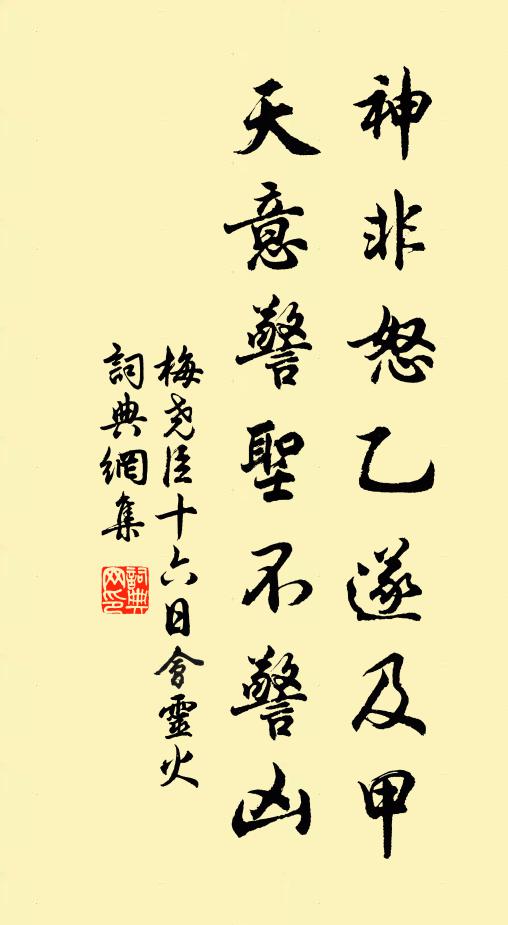 神非怒乙遂及甲
天意警聖不警凶
梅尧臣十六日會靈火
詞典網集
詞典
网印